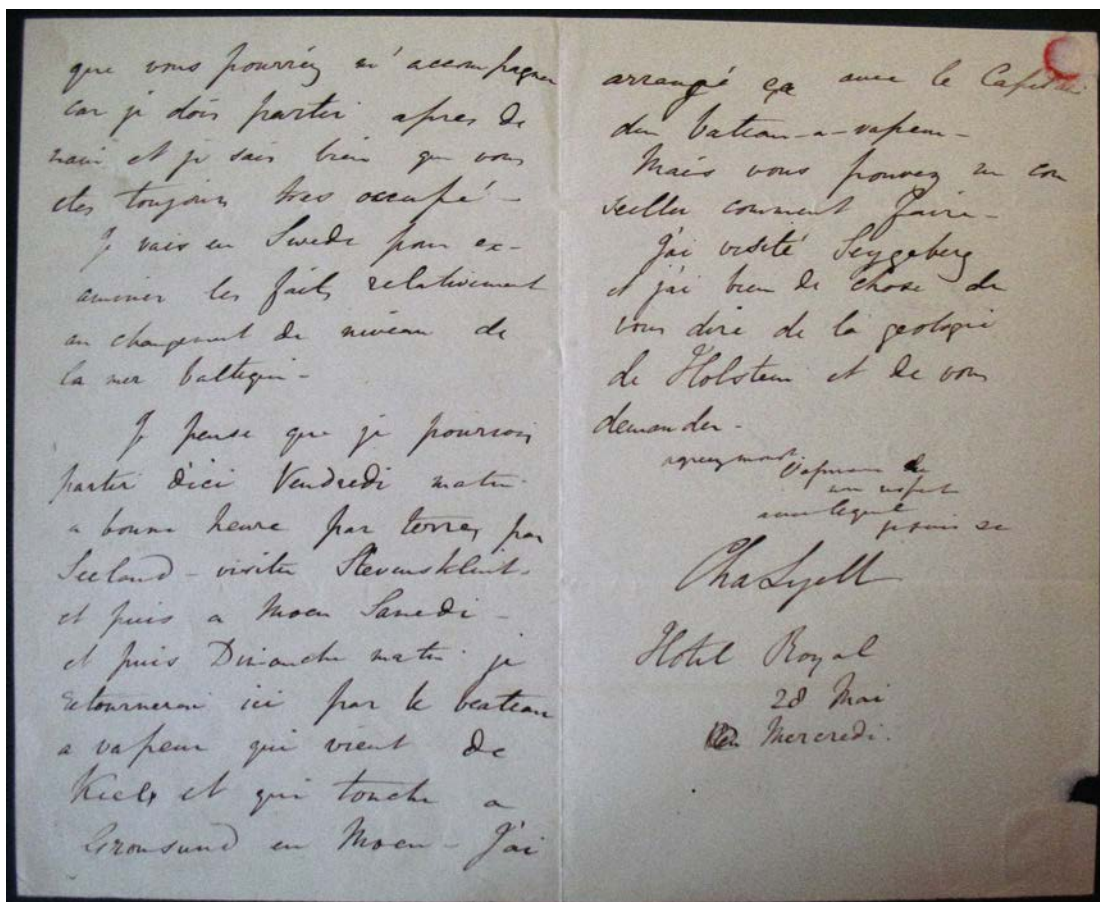 que vous pourriéz m'accompagner
car je dois partir apres de
main et je sais bien que vous
etes toujours tres occupé -
Je vais en Swede pour ex-
aminer les faits relativement
au changement de niveau de
la mer baltique -
Je pense que je pourrois
partir d'ici Vendredi matin
a bonne heure par terre, par
Seeland - visiter Stevensklint -
et puis a Moen Samedi -
et puis Dimanche matin je
retournerai ici par le beateau
a vapeur qui vient de
Kiel et qui touche a
Gronsund en Moen - J'ai
arrangé ça avec le Capitain
du bateau-a-vapeur -
Mais vous pouvez me con
seiller comment faire -
J'ai visité Seggeberg
et j'ai bien de chose de
vous dire de la geologie
de Holstein et de vous
demander -
agreez mons.
un respect
avec lequel
je suis
Cha Lyell
Hotel Royal
28 Mai
Mercredi.